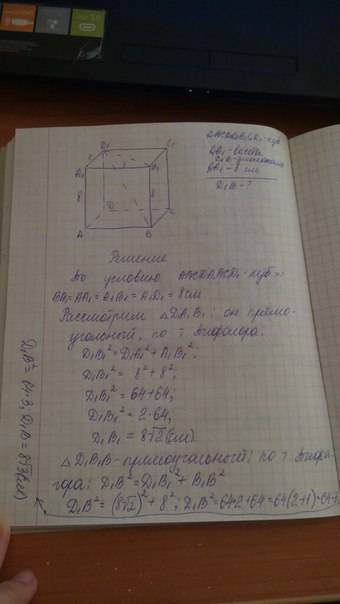 D₁ C₁
A₁ 8 B₁
8 8
D C
A B
ABCDA₁B₁C₁D₁-куб
AA₁-высота
D₁B-диагональ
AA₁-8 см
D₁B-?
Решение
По условию ABCDA₁B₁C₁D₁-куб =>
BB₁=AA₁=A₁B₁=A₁D₁=8см.
Рассмотрим △DA₁B₁: он прямо-
угольный, по т. Пифагора.
D₁B₁²=D₁A₁²+A₁B₁²;
D₁B₁²= 8²+8²;
D₁B₁²=64+64;
D₁B₁²=2·64;
D₁B₁=8√2(см).
△D₁B₁B-прямоугольный; по т. Пифа-
гора: D₁B²=D₁B₁²+B₁B²
D₁B²=(8√2)²+8²; D₁B²=64·2+64=64(2+1)=64·
D₁B²=64·3; D₁B=8√3(см)